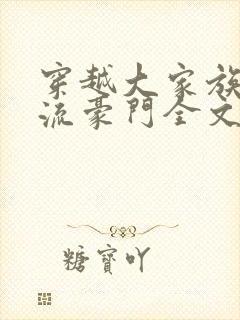 穿越大家族
流豪門全文
糖寶吖